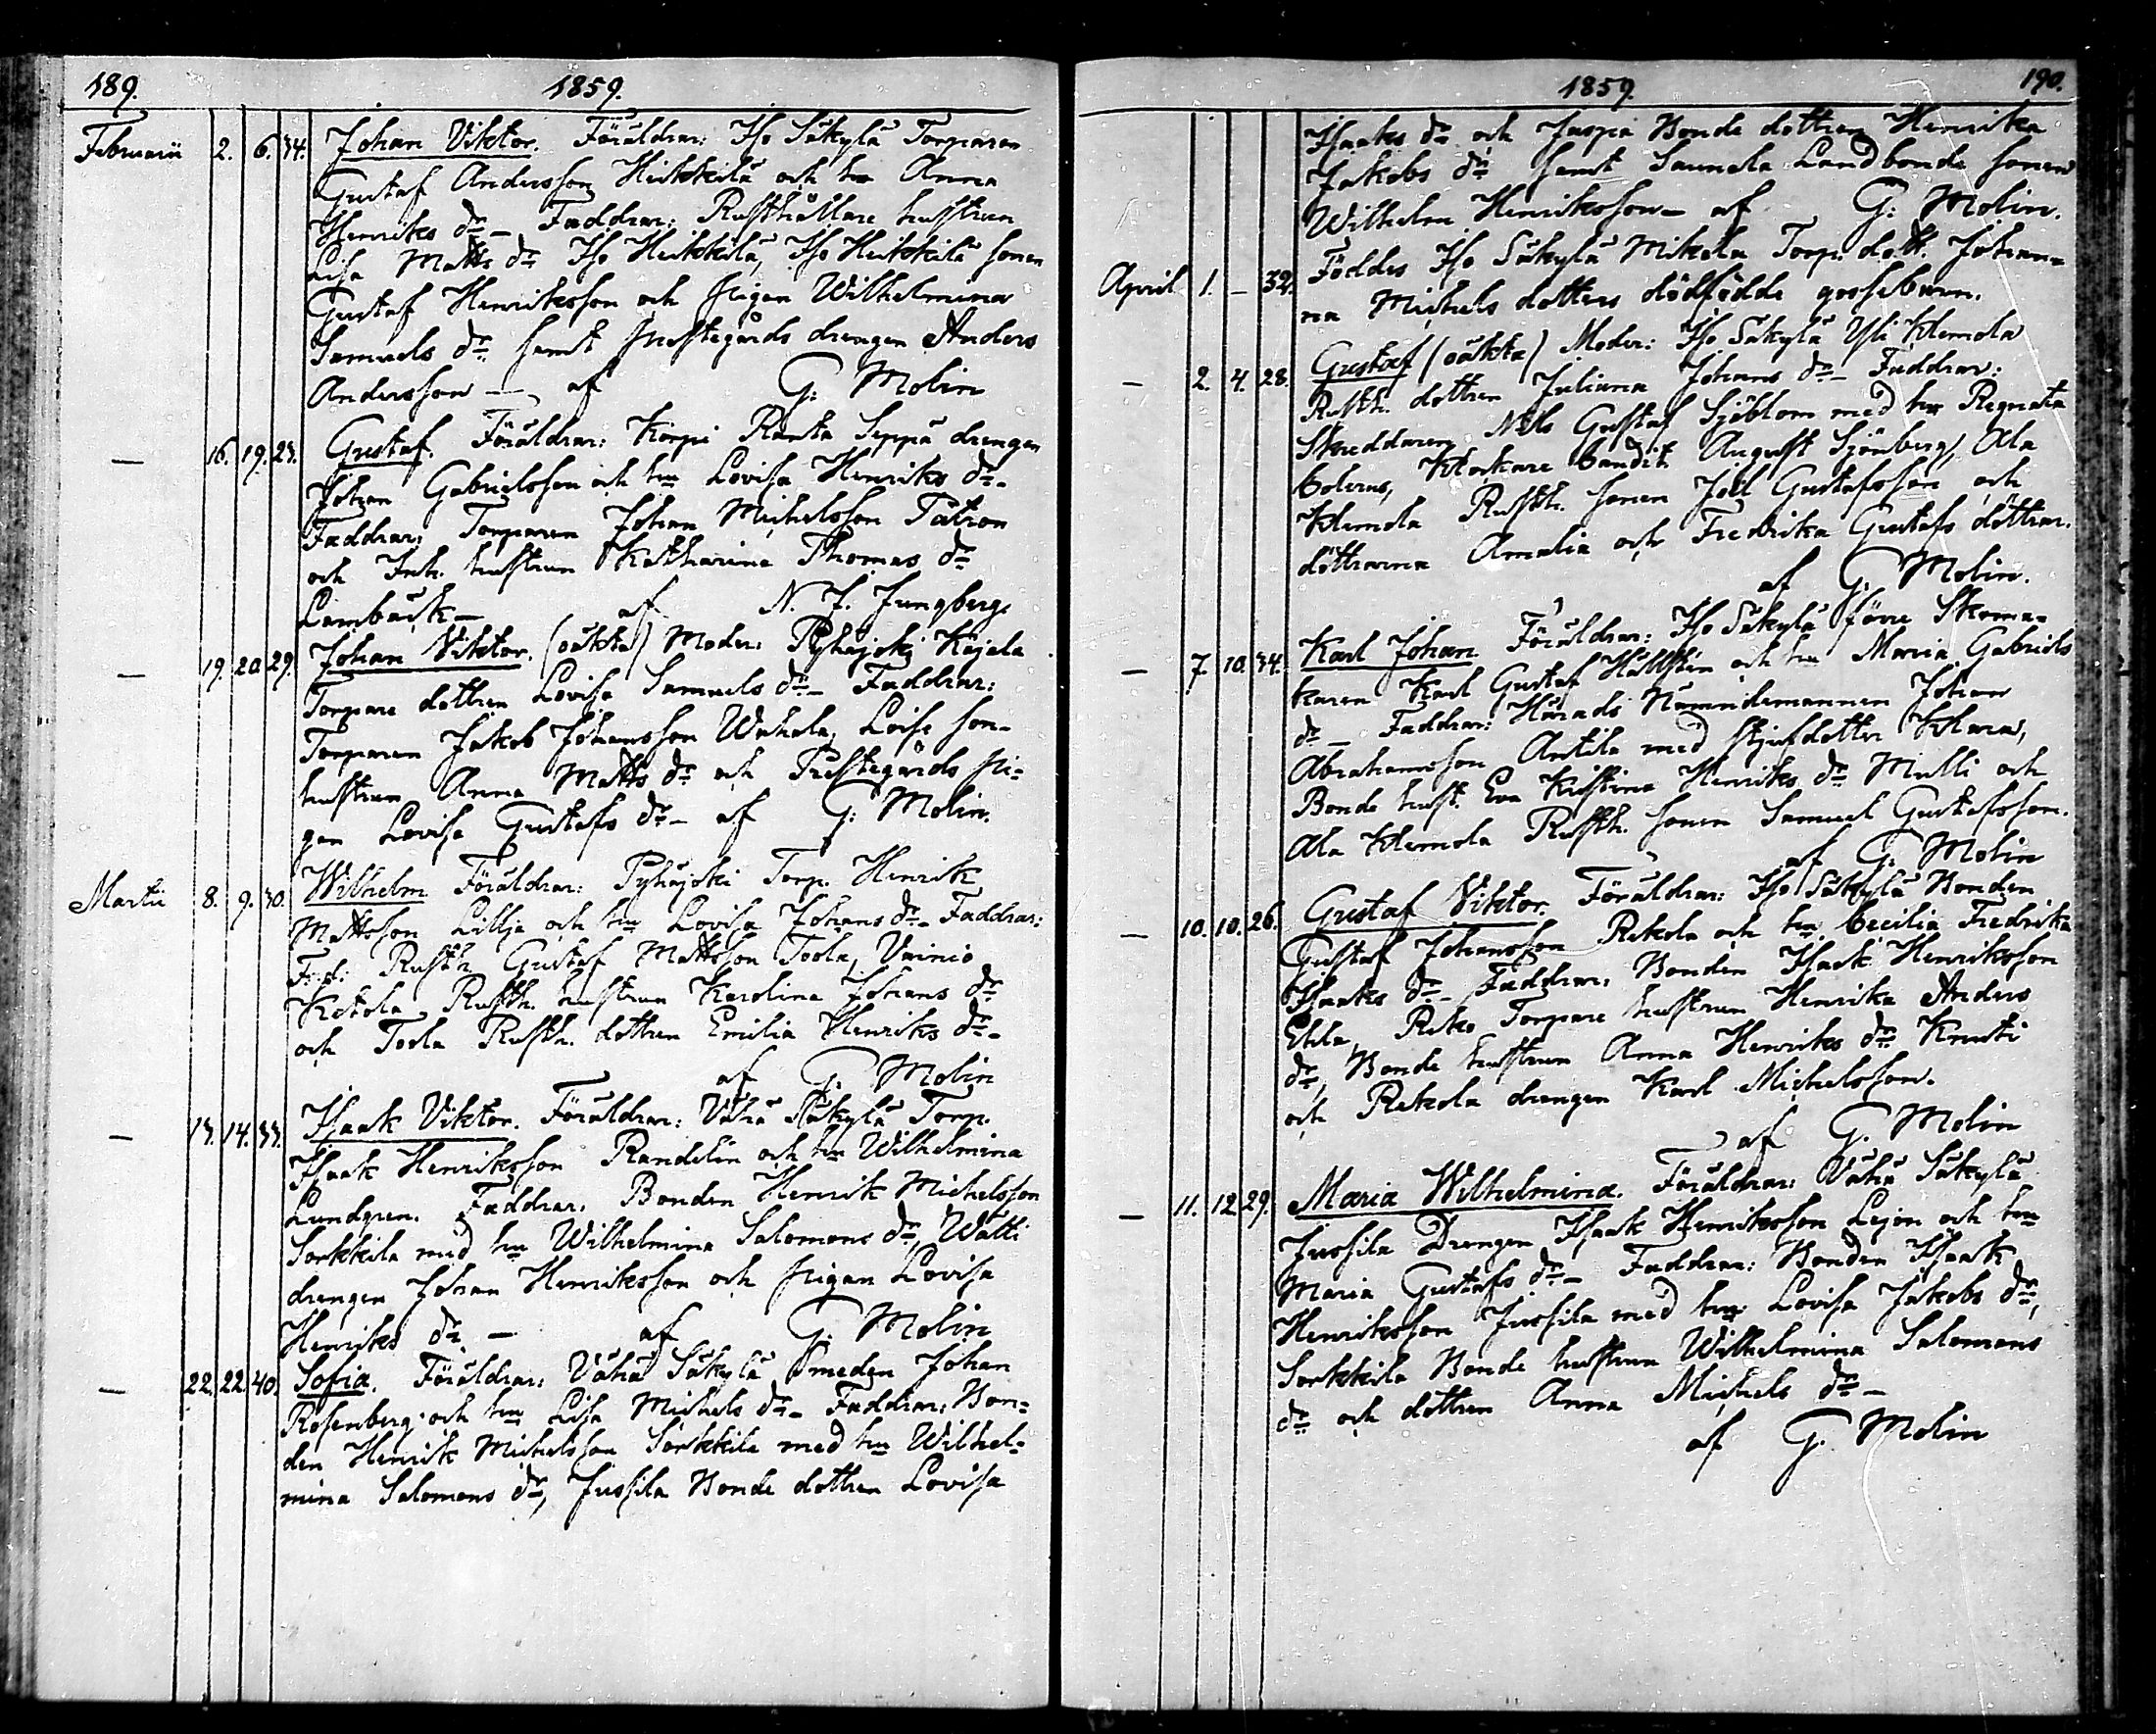 189.
1859.
Februarii 2. 6. 34. Johan Viktor. Föräldrar: Iso Säkylä Torparen
Gustaf Andersson Heikkilä och hu Anna
Henriks dr – Faddrar: Rusthållare hustrun
Lisa Matts dr Iso Heikkilä, Iso Heikkilä sonen
Gustaf Henriksson och pigan Wilhelmina
Samuels dr samt prestegårds drengen Anders
Andersson – af G: Molin
– 16. 19. 23. Gustaf. Föräldrar: Korpi Ranta Seppä drengen
Johan Gabrielsson och hu Lovisa Henriks dr –
Faddrar: Torparen Johan Michelsson Patron
och Inh. hustrun Katharina Thomas dr
Lambäck – af N. J. Jungberg
– 19. 20. 29. Johan Viktor. (oäkta) Moder: Pyhäjoki Kejala
Torpare dottren Lovisa Samuels dr – Faddrar:
Torparen Jakob Johansson Wahala, Loise son-
hustrun Anna Matts dr och Prestegårds pi-
gan Lovisa Gustafs dr – af G: Molin.
Martii 8. 9. 30. Wilhelm Föräldrar: Pyhäjoki Torp. Henrik
Mattsson Lillja och hu Lovisa Johans dr – Faddrar:
F.d. Rusth. Gustaf Mattsson Toola, Vainio
Katola Rusth. hustrun Karolina Johans dr
och Toola Rusth. dottren Emilia Henriks dr –
af G. Molin
– 13. 14. 33. Isaak Viktor. Föräldrar: Vähä Säkylä Torp.
Isaak Henriksson Randelin och hu Wilhelmina
Lundgren. Faddrar. Bonden Henrik Michelsson
Sorkkila med hu Wilhelmina Salomons dr, Watti
drengen Johan Henriksson och pigan Lovisa
Henriks dr – af G: Molin
– 22. 22. 40. Sofia. Föräldrar: Vähä Säkylä Smeden Johan
Rosenberg och hu Lisa Michels dr – Faddrar: Bon-
den Henrik Michelsson Sorkkila med hu Wilhel-
mina Salomons dr, Jussila Bonde dottren Lovisa
1859.
190.
Isaaks dr och Juspia Bonde dottren Henrika
Jakobs dr samt Saunela Landbonde sonen
Wilhelm Henriksson – af G: Molin.
April 1. – 32. Föddes Iso Säkylä Mikola Torp. dott. Johan-
na Michels dotters dödfödde gossebarn.
– 2. 4. 28. Gustaf (oäkta) Moder: Iso Säkylä Yli Klemola
Rusth. dottren Juliana Johans dr – Faddrar:
Skreddaren Nils Gustaf Sjöblom med hu Regnata
Bolerus, Klockare bandit August Sjönberg, Ala
Klemola Rusth. sonen Joel Gustafsson och
döttrarna Amalia och Fredrika Gustafs döttrar.
af G. Molin.
– 7. 10. 34. Karl Johan Föräldrar: Iso Säkylä förre Skoma-
karen Karl Gustaf Hällsten och hu Maria Gabriels
dr – Faddrar: Härads Nämndemannen Johan
Abrahamsson Antila med stjufdotter Klara,
Bonde hust. Eva Kristina Henriks dr Mulli och
Ala Klemola Rusth. sonen Samuel Gustafsson.
af G. Molin
– 10. 10. 26. Gustaf Viktor. Föräldrar: Iso Säkylä Bonden
Gustaf Johansson Rekola och hu Cecilia Fredrika
Isaaks dr – Faddrar: Bonden Isaak Henriksson
Elila, Reko Torpare hustrun Henrika Anders
dr, Bonde hustrun Anna Henriks dr Knuti
och Rekola drengen Karl Michelsson.
af G. Molin
– 11. 12. 29. Maria Wilhelmina. Föräldrar: Vähä Säkylä
Jussila Drengen Isaak Henriksson Lejon och hu
Maria Gustafs dr – Faddrar: Bonden Isaak
Henriksson Jussila med hu Lovisa Jakobs dr,
Sorkkila Bonde hustrun Wilhelmina Salomons
dr och dottren Anna Michels dr –
af G. Molin